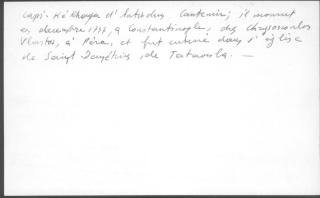 Capi-Kéhhaya d'Antiochus Cantemir; il mourut
en decembre 1737, a Constantinople, chez Chryssoscoulos
Vlastos, à Péra, et fut enterré dans l'église
de Saint Demétrius, de Tataoula. —